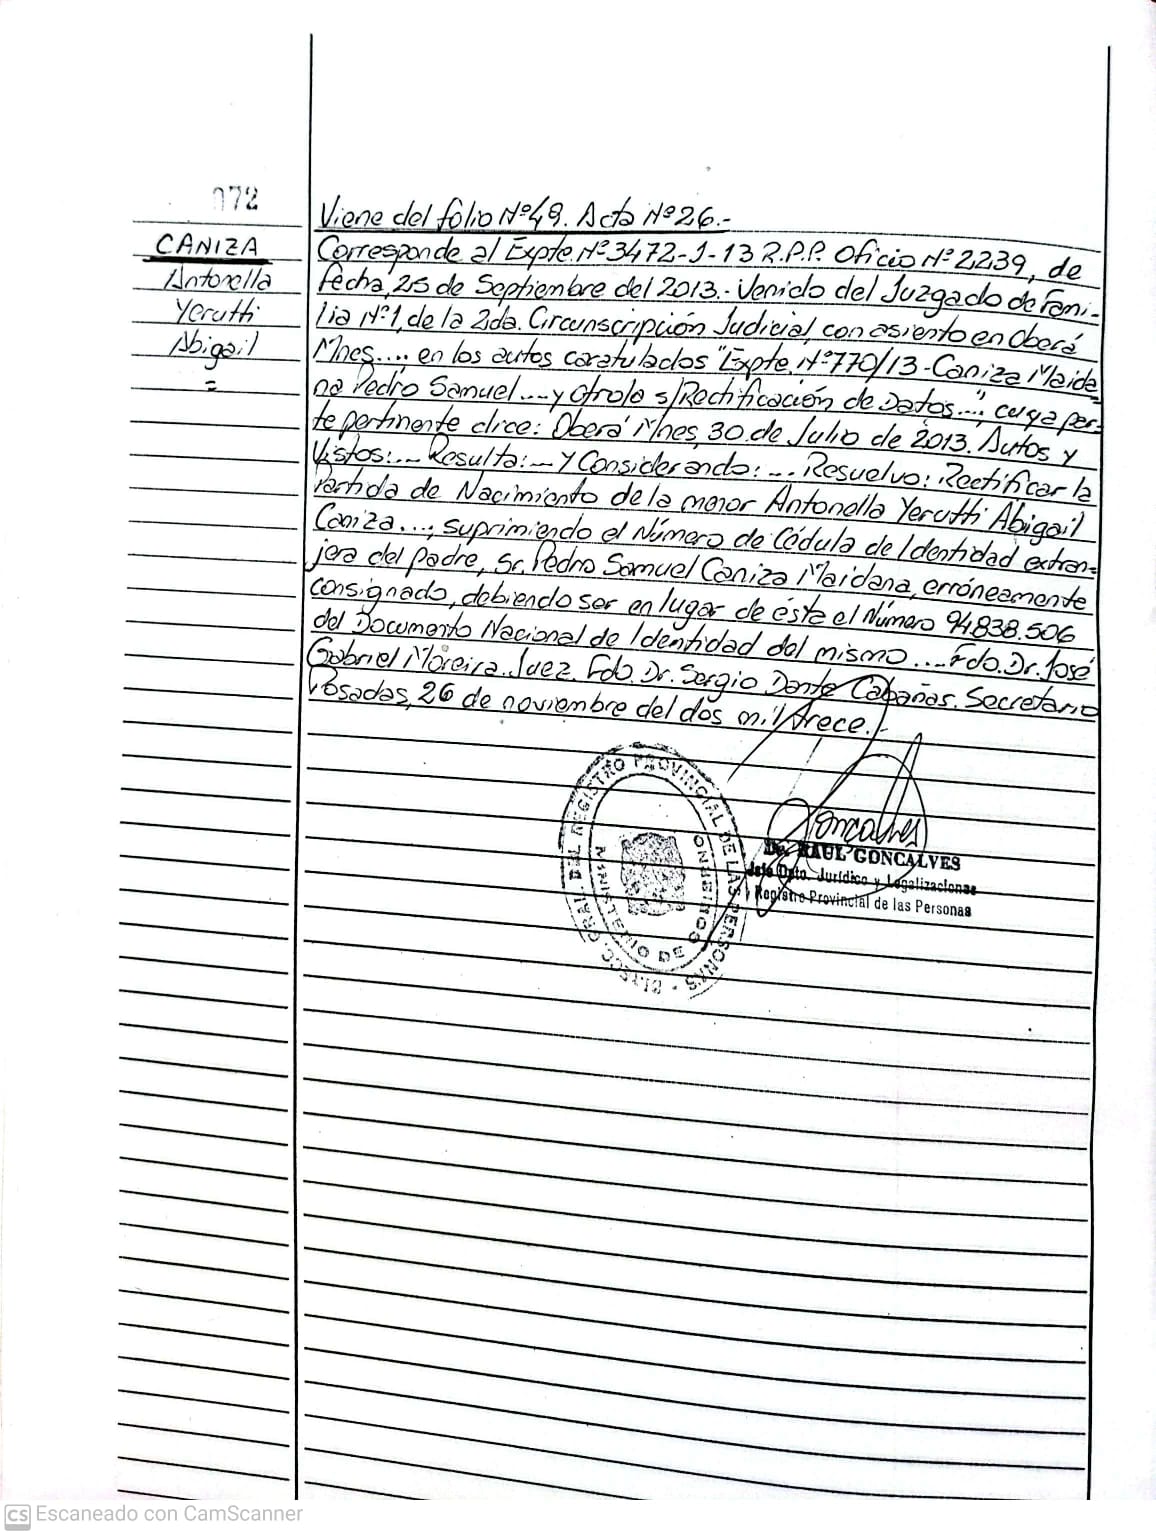 072
CANIZA
Antonella
Yerutti
Abigail
=
Viene del folio Nº49. Acta Nº26.-
Corresponde al Expte. Nº3472-J-13 R.P.P. Oficio Nº2239, de
fecha, 25 de Septiembre del 2013.- Venido del Juzgado de Fami-
lia Nº1, de la 2da. Circunscripción Judicial, con asiento en Oberá
Mnes.... en los autos caratulados "Expte. Nº770/13-Caniza Maida=
na Pedro Samuel.... y otro/a s/Rectificación de Datos....", cuya par=
te pertinente dice: Oberá Mnes, 30 de Julio de 2013. Autos y
Vistos:.... Resulta:.... Y Considerando:.... Resuelvo: Rectificar la
Partida de Nacimiento de la menor Antonella Yerutti Abigail
Caniza...., suprimiendo el Número de Cédula de Identidad extran=
jera del padre, Sr. Pedro Samuel Caniza Maidana, erróneamente
consignado, debiendo ser en lugar de éste el Número 94.838.506
del Documento Nacional de Identidad del mismo.... Fdo. Dr. José
Gabriel Moreira. Juez. Fdo. Dr. Sergio Dante Cabañas. Secretario
Posadas, 26 de noviembre del dos mil trece.-
Goncalves
Dr. RAUL GONCALVES
Jefe Dpto. Jurídico y Legalizaciones
Registro Provincial de las Personas
DIRECC. GRAL. DEL REGISTRO PROVINCIAL DE LAS PERSONAS
MINISTERIO DE GOBIERNO
CS Escaneado con CamScanner